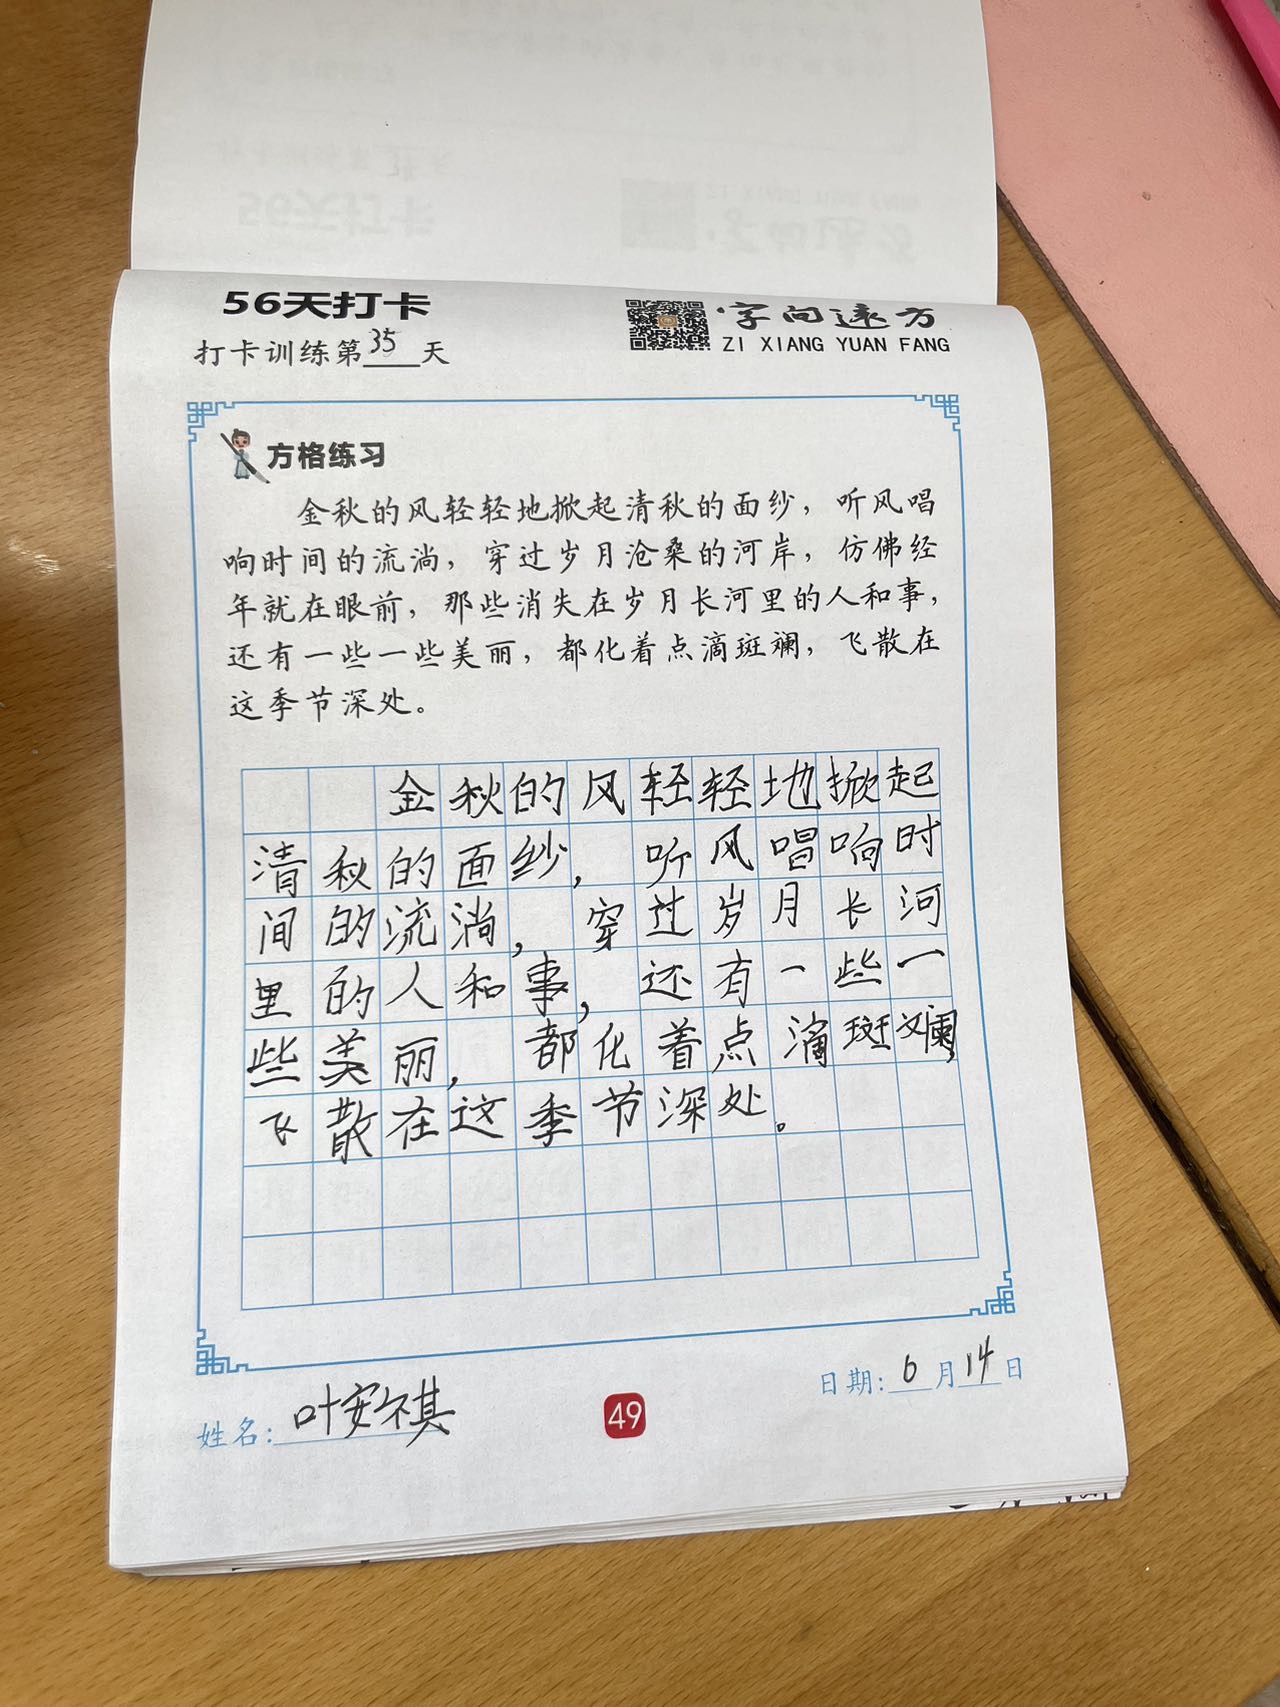 56天打卡
打卡训练第35天
字向远方
ZI XIANG YUAN FANG
方格练习
金秋的风轻轻地掀起清秋的面纱，听风唱
响时间的流淌，穿过岁月沧桑的河岸，仿佛经
年就在眼前，那些消失在岁月长河里的人和事，
还有一些一些美丽，都化着点滴斑斓，飞散在
这季节深处。
金秋的风轻轻地掀起
清秋的面纱，听风唱响时
间的流淌，穿过岁月长河
里的人和事，还有一些一
些美丽，都化着点滴斑斓，
飞散在这季节深处。
姓名：叶安祺
49
日期：6月14日